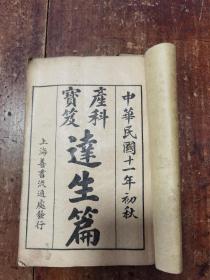 中華民國十一年初秋
產科寶笈
達生篇
上海善書流通處發行